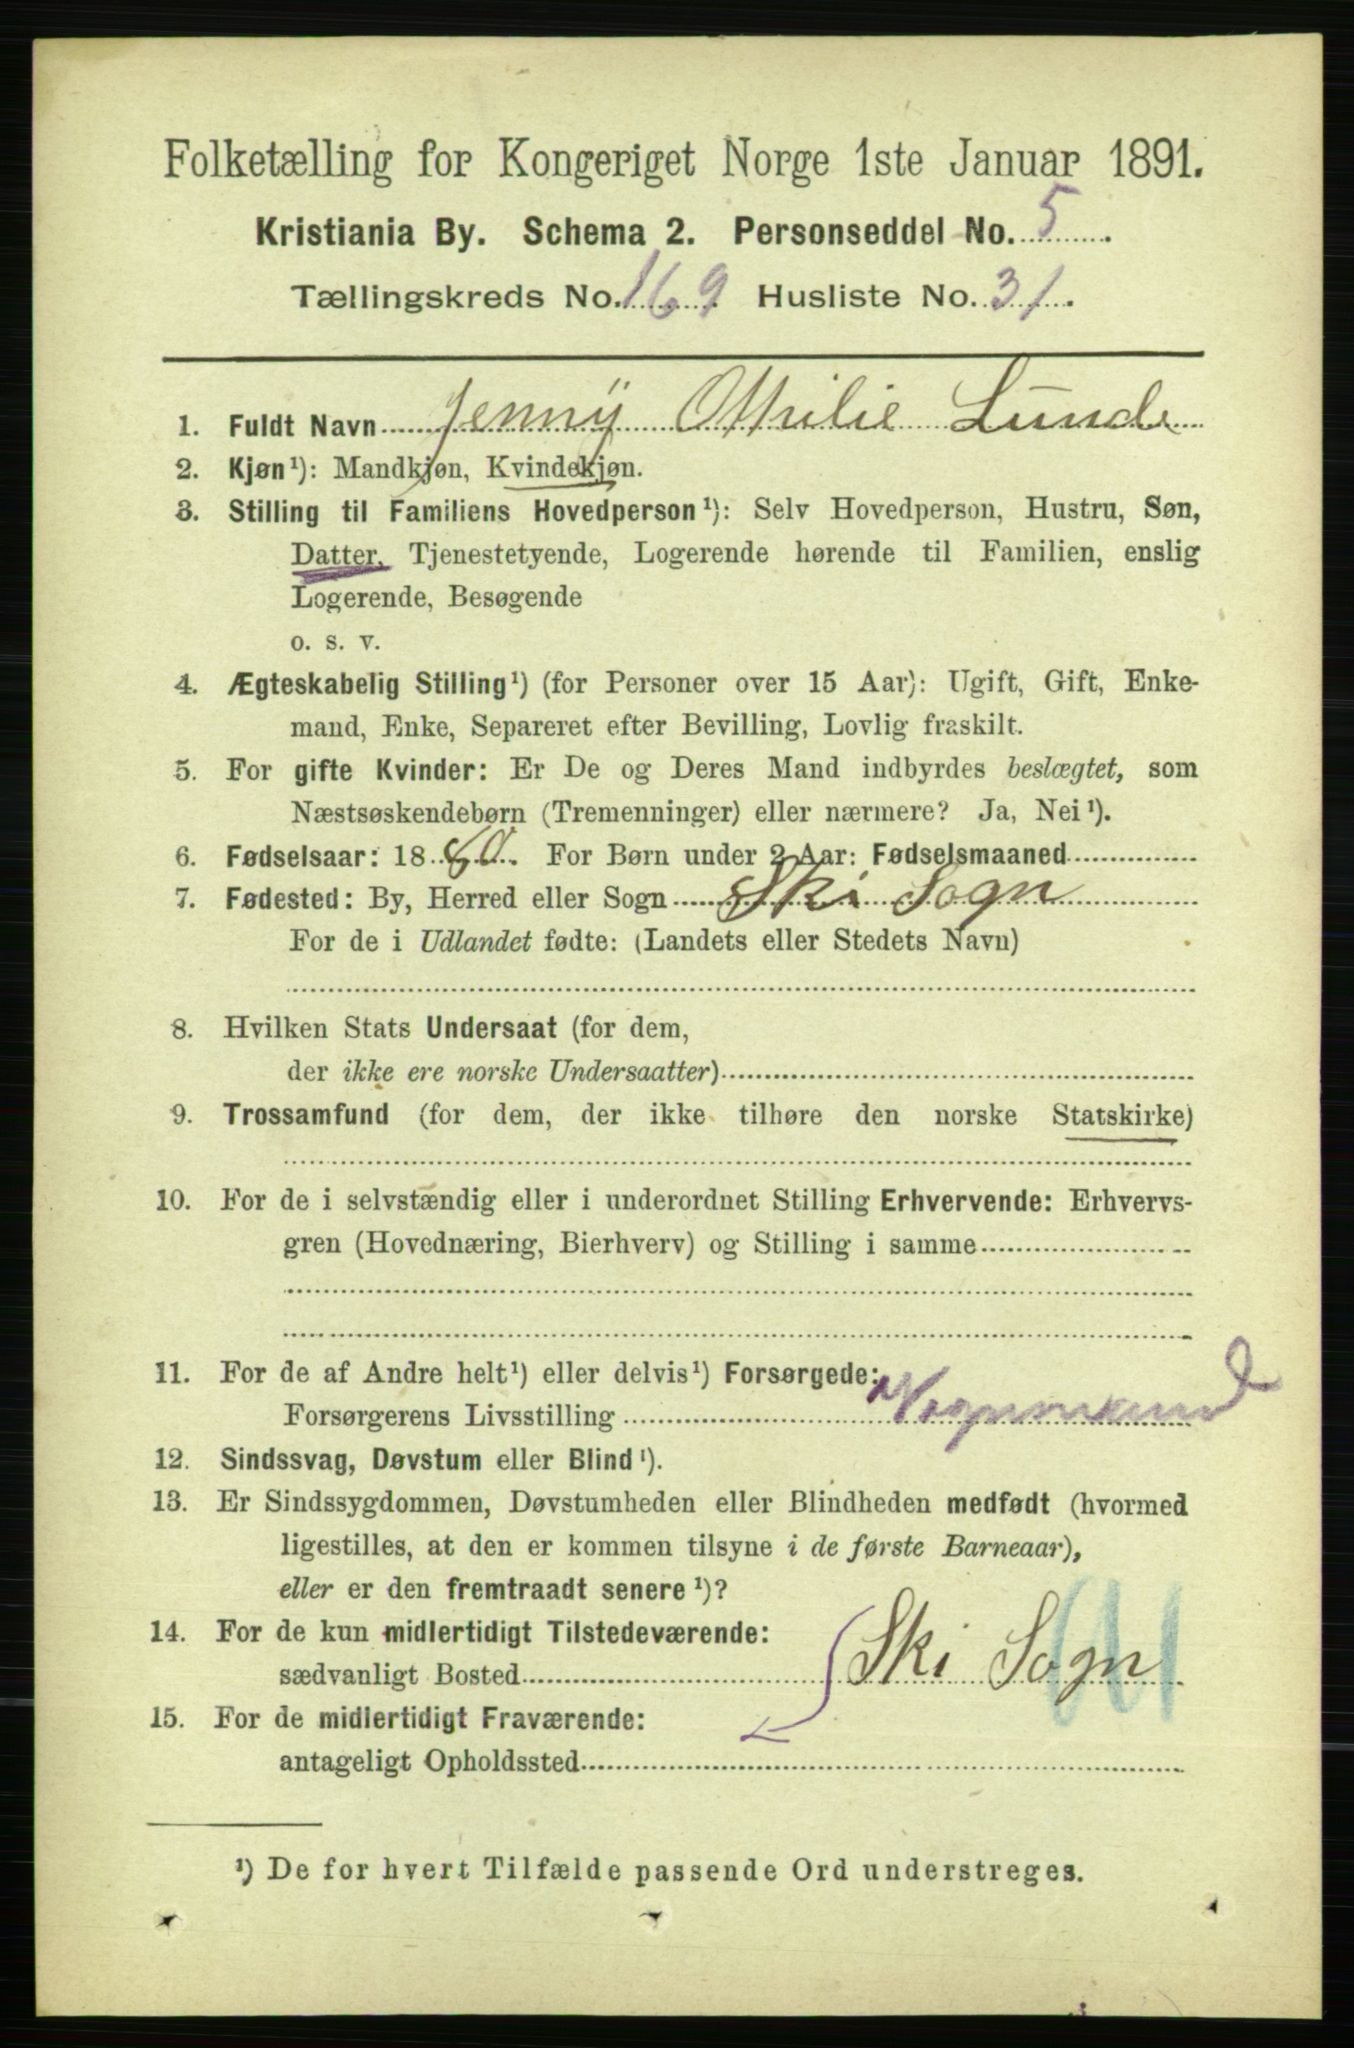 Folketælling for Kongeriget Norge 1ste Januar 1891.
Kristiania By. Schema 2. Personseddel No. 5.
Tællingskreds No. 169. Husliste No. 31.
1. Fuldt Navn Jenny Othilie Lunde
2. Kjøn¹): Mandkjøn, Kvindekjøn.
3. Stilling til Familiens Hovedperson¹): Selv Hovedperson, Hustru, Søn,
Datter, Tjenestetyende, Logerende hørende til Familien, enslig
Logerende, Besøgende
o. s. v.
4. Ægteskabelig Stilling¹) (for Personer over 15 Aar): Ugift, Gift, Enke-
mand, Enke, Separeret efter Bevilling, Lovlig fraskilt.
5. For gifte Kvinder: Er De og Deres Mand indbyrdes beslægtet, som
Næstsøskendebørn (Tremenninger) eller nærmere? Ja, Nei¹).
6. Fødselsaar: 1880. For Børn under 2 Aar: Fødselsmaaned
7. Fødested: By, Herred eller Sogn Ski Sogn
For de i Udlandet fødte: (Landets eller Stedets Navn)
8. Hvilken Stats Undersaat (for dem,
der ikke ere norske Undersaatter)
9. Trossamfund (for dem, der ikke tilhøre den norske Statskirke)
10. For de i selvstændig eller i underordnet Stilling Erhvervende: Erhvervs-
gren (Hovednæring, Bierhverv) og Stilling i samme
11. For de af Andre helt¹) eller delvis¹) Forsørgede:
Forsørgerens Livsstilling Vognmand
12. Sindssvag, Døvstum eller Blind¹).
13. Er Sindssygdommen, Døvstumheden eller Blindheden medfødt (hvormed
ligestilles, at den er kommen tilsyne i de første Barneaar),
eller er den fremtraadt senere¹)?
14. For de kun midlertidigt Tilstedeværende:
sædvanligt Bosted Ski Sogn
15. For de midlertidigt Fraværende:
antageligt Opholdssted
¹) De for hvert Tilfælde passende Ord understreges.